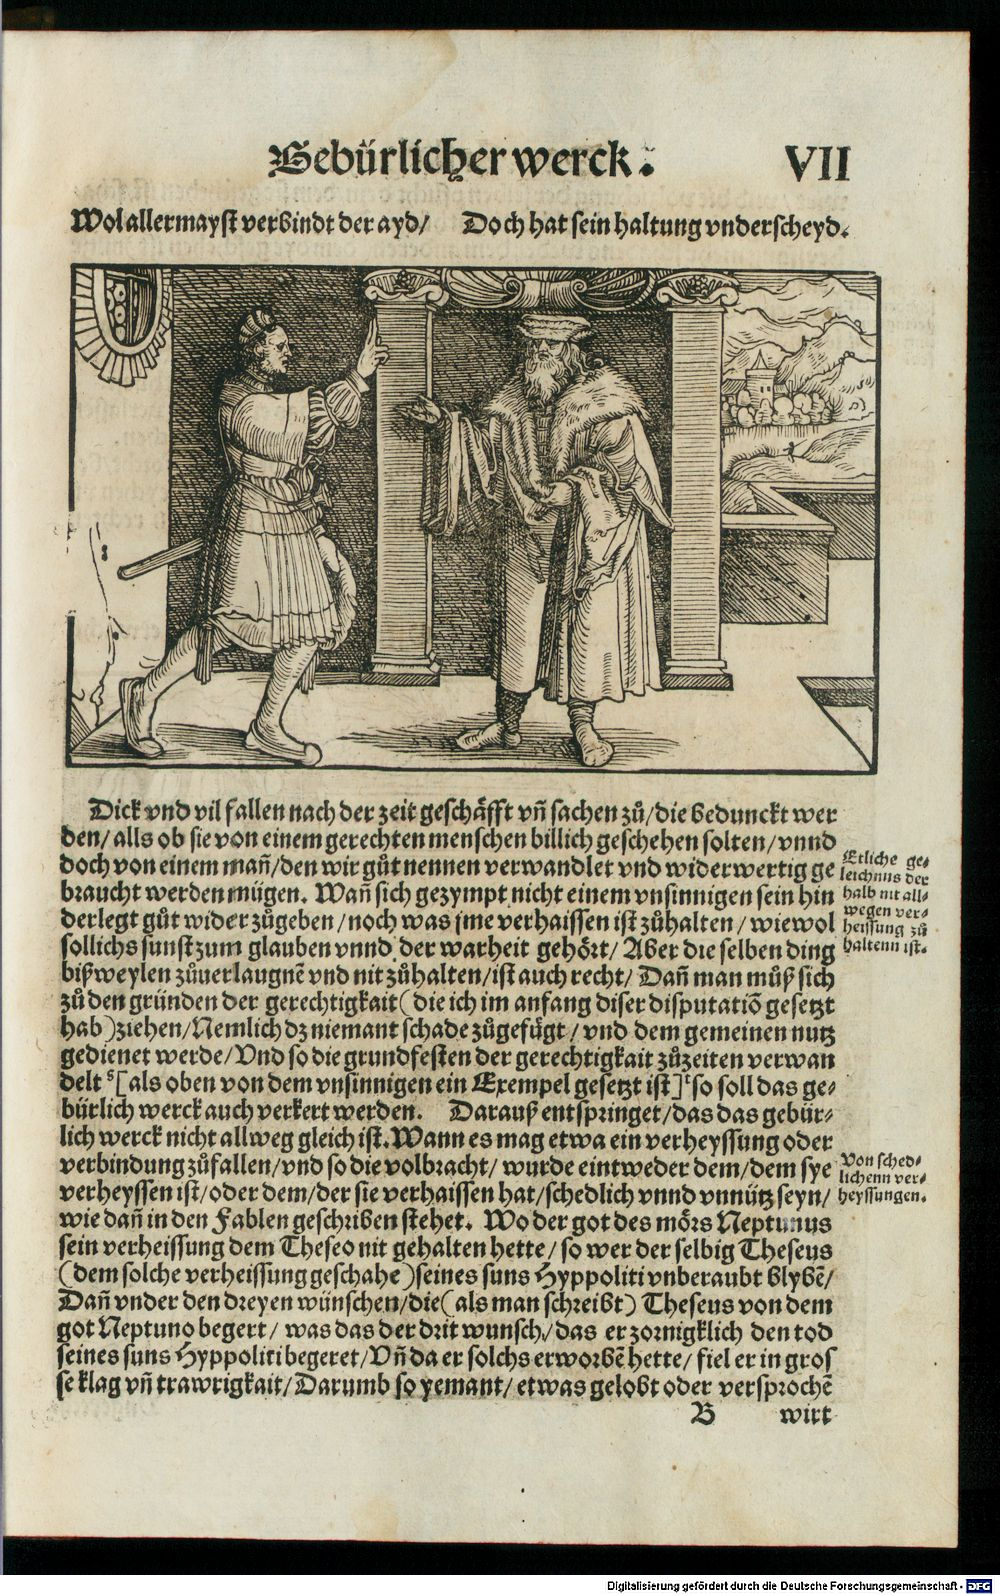 Gebürlicher werck. VII
Wol allermayst verbindt der ayd/ Doch hat sein haltung vnderscheyd.
Dick vnd vil fallen nach der zeit geschäfft vñ sachen zů/die bedunckt wer
den/alls ob sie von einem gerechten menschen billich geschehen solten/vnnd
doch von einem mañ/den wir gůt nennen verwandlet vnd widerwertig ge
braucht werden mügen. Wañ sich gezympt nicht einem vnsinnigen sein hin
derlegt gůt wider zůgeben/noch was jme verhaissen ist zůhalten/wiewol
sollichs sunst zum glauben vnnd der warheit gehört/Aber die selben ding
bißweylen zůuerlaugnē vnd nit zůhalten/ist auch recht/Dañ man můß sich
zů den gründen der gerechtigkait(die ich im anfang diser disputatiō gesetzt
hab)ziehen/Nemlich dz niemant schade zůgefügt/vnd dem gemeinen nutz
gedienet werde/Vnd so die grundfesten der gerechtigkait zůzeiten verwan
delt s[als oben von dem vnsinnigen ein Exempel gesetzt ist]t so soll das ge-
bürlich werck auch verkert werden. Darauß entspringet/das das gebür-
lich werck nicht allweg gleich ist. Wann es mag etwa ein verheyssung oder
verbindung zůfallen/vnd so die volbracht/wurde eintweder dem/dem sye
verheyssen ist/oder dem/der sie verhaissen hat/schedlich vnnd vnnütz seyn/
wie dañ in den Fablen geschriben stehet. Wo der got des mörs Neptunus
sein verheissung dem Theseo nit gehalten hette/so wer der selbig Theseus
(dem solche verheissung geschahe)seines suns Hyppoliti vnberaubt blybē/
Dañ vnder den dreyen wünschen/die(als man schreibt)Theseus von dem
got Neptuno begert/was das der drit wunsch/das er zornigklich den tod
seines suns Hyppoliti begeret/Vñ da er solchs erworbē hette/fiel er in gros
se klag vñ trawrigkait/Darumb so yemant/etwas gelobt oder versprochē
B wirt
Etliche ge-
leichnus der
halb nit all-
wegen ver-
heissung zů
haltenn ist.
Von sched-
lichenn ver-
heyssungen.
Digitalisierung gefördert durch die Deutsche Forschungsgemeinschaft - DFG